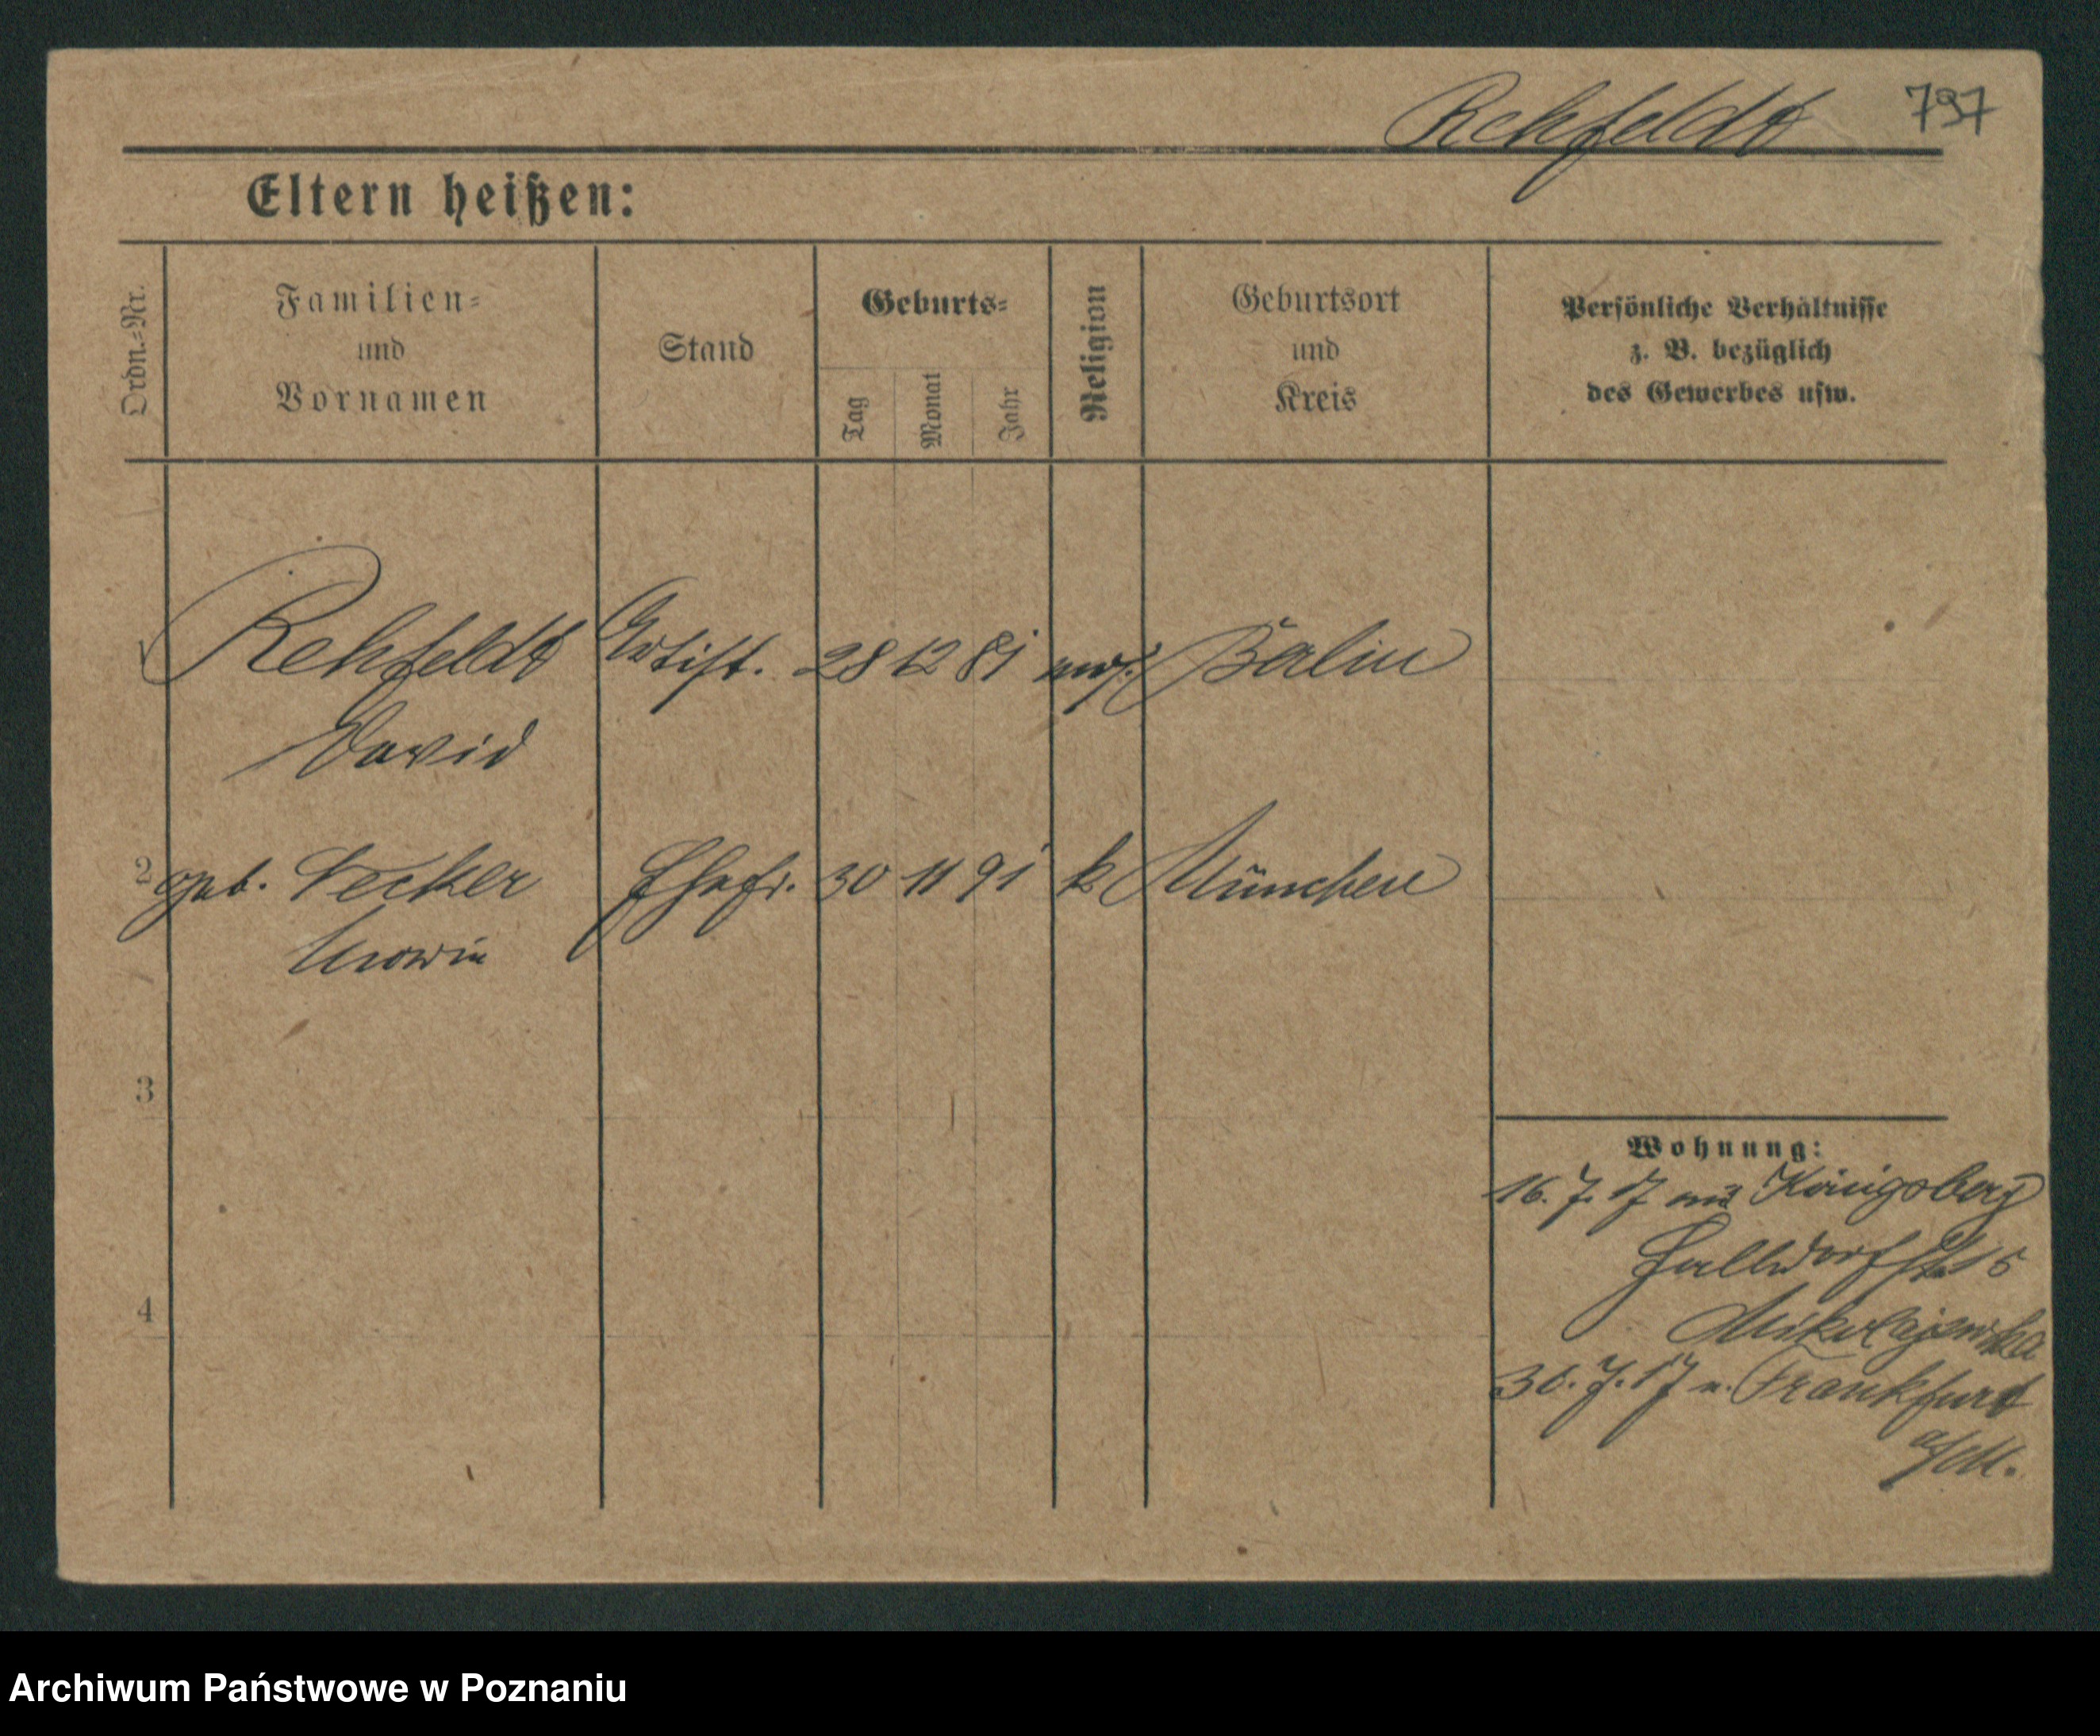 Rehfeldt 797
Eltern heißen:
Ordn.=Nr.
Familien=
und
Vornamen
Stand
Geburts=
Tag
Monat
Jahr
Religion
Geburtsort
und
Kreis
Persönliche Verhältnisse
z. B. bezüglich
des Gewerbes usw.
Rehfeldt Artist. 28 12 81 Berlin
David
2 geb. Ehefr. 30 11 91 k München
3
4
Wohnung:
16. 7. 17 aus Königsberg
Halldorfstr 15
30. 7. 17 n. Frankfurt
a/M.
Archiwum Państwowe w Poznaniu